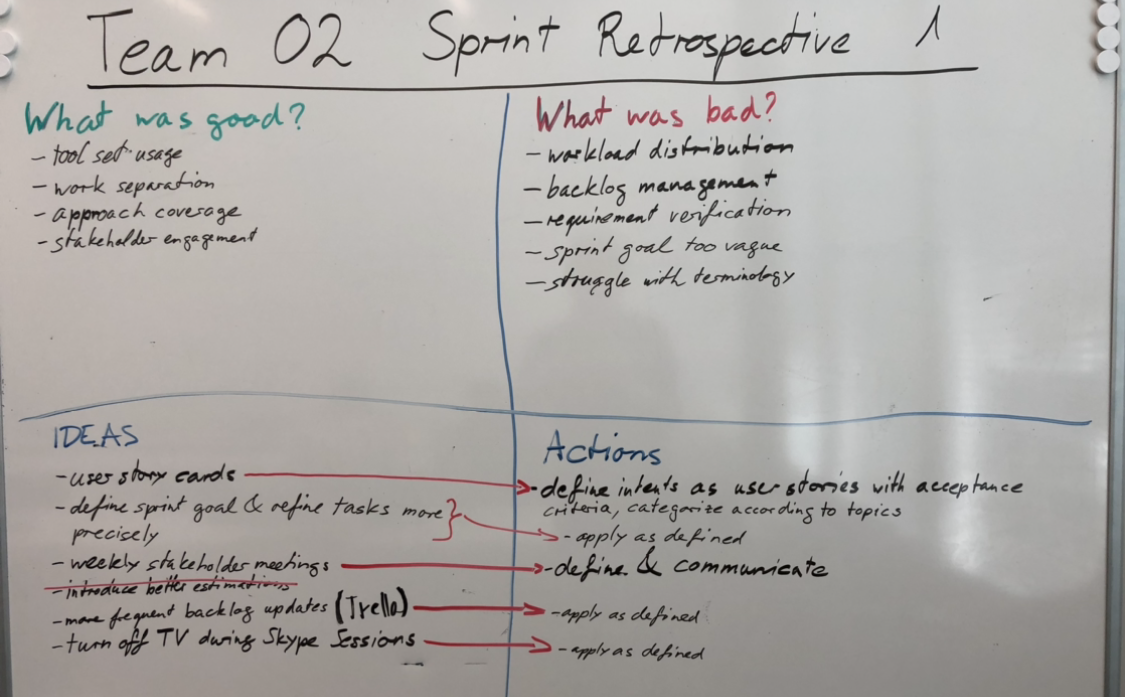 Team 02 Sprint Retrospective 1
What was good?
- tool set usage
- work separation
- approach coverage
- stakeholder engagement
What was bad?
- workload distribution
- backlog management
- requirement verification
- sprint goal too vague
- struggle with terminology
IDEAS
- user story cards
- define sprint goal & refine tasks more
precisely
- weekly stakeholder meetings
- introduce better estimations
- more frequent backlog updates (Trello)
- turn off TV during Skype Sessions
Actions
- define intents as user stories with acceptance
criteria, categorize according to topics
- apply as defined
- define & communicate
- apply as defined
- apply as defined